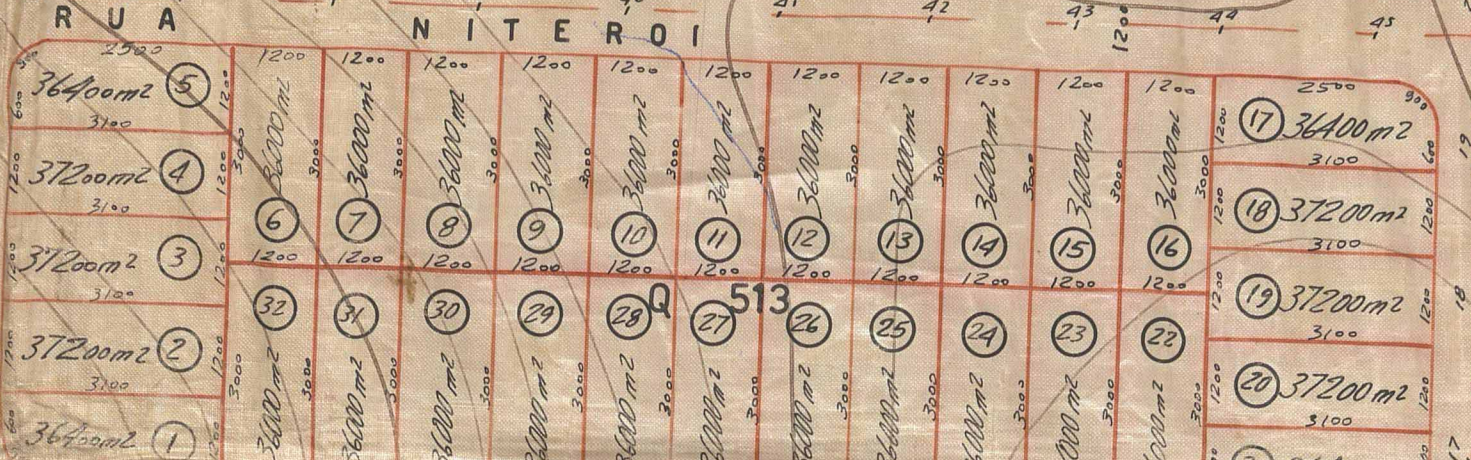 41 42 43 44 45
1200
RUA NITEROI
2500 1200 1200 1200 1200 1200 1200 1200 1200 1200 1200 1200 2500
900
600 36400m2 5 1200
3100
1200 37200m2 4 1200
3100
1200 37200m2 3 1200
3100
1200 37200m2 2 1200
3100
600 36400m2 1
36000m2 36000m2 36000m2 36000m2 36000m2 36000m2 36000m2 36000m2 36000m2 36000m2 36000m2
3000 3000 3000 3000 3000 3000 3000 3000 3000 3000 3000 3000
6 7 8 9 10 11 12 13 14 15 16
1200 1200 1200 1200 1200 1200 1200 1200 1200 1200 1200
Q 513
32 31 30 29 28 27 26 25 24 23 22
3000 3000 3000 3000 3000 3000 3000 3000 3000 3000 3000
36000m2 36000m2 36000m2 36000m2 36000m2 36000m2 36000m2 36000m2
1200 17 36400m2 600
3100
1200 18 37200m2 1200
3100
1200 19 37200m2 1200
3100
1200 20 37200m2 1200
3100
19
18
17